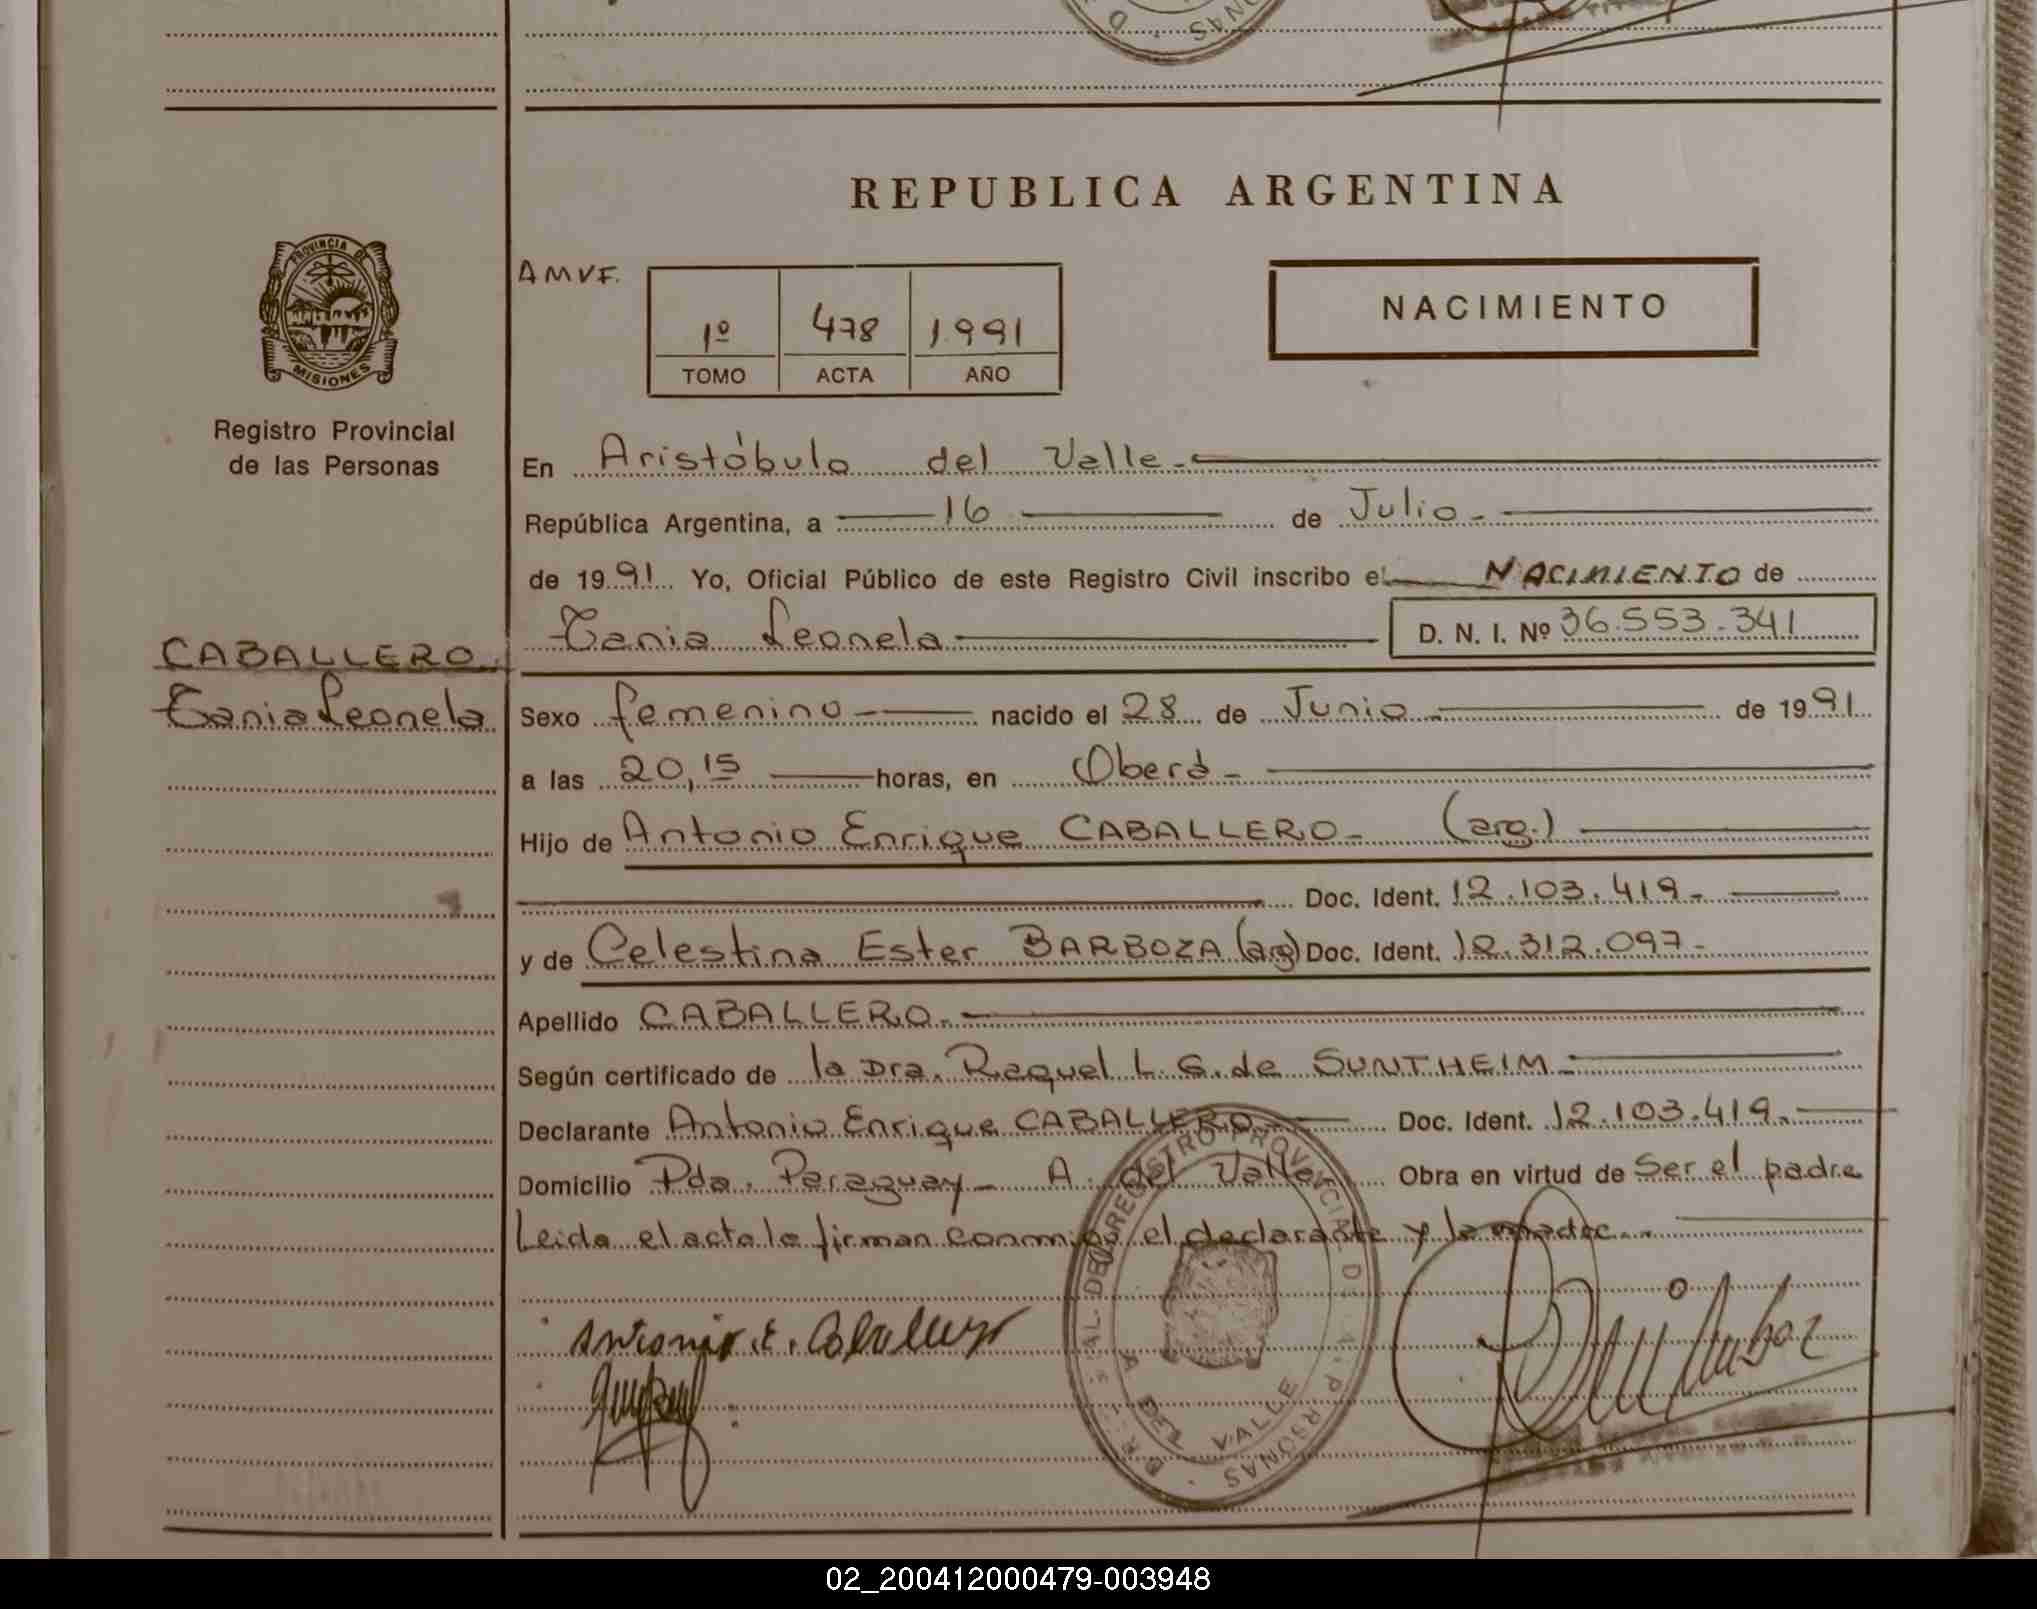 REPUBLICA ARGENTINA
PROVINCIA DE
MISIONES
Registro Provincial
de las Personas
AMVF.
1º 478 1.991
TOMO ACTA AÑO
NACIMIENTO
En Aristóbulo del Valle.-
República Argentina, a 16 de Julio.-
de 1991 Yo, Oficial Público de este Registro Civil inscribo el NACIMIENTO de
Tania Leonela D. N. I. Nº 36.553.341
CABALLERO
Tania Leonela
Sexo femenino nacido el 28 de Junio de 1991
a las 20,15 horas, en Oberá-
Hijo de Antonio Enrique CABALLERO- (arg.)
Doc. Ident. 12.103.419-
y de Celestina Ester BARBOZA (arg) Doc. Ident. 12.312.097-
Apellido CABALLERO.-
Según certificado de la Dra. Raquel L. G. de SUNTHEIM-
Declarante Antonio Enrique CABALLERO- Doc. Ident. 12.103.419.-
Domicilio Pda. Paraguay- A. del Valle Obra en virtud de Ser el padre
Leida el acta la firman conmigo el declarante y la madre.-
Antonio E. Caballero
REGISTRO PROVINCIAL DE
VALLE
02_200412000479-003948